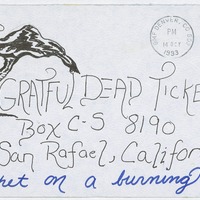 DENVER, CO
PM
1993
GRATFUL DEAD TICKE
BOX C-S 8190
San Rafael, Califor
ket on a burning